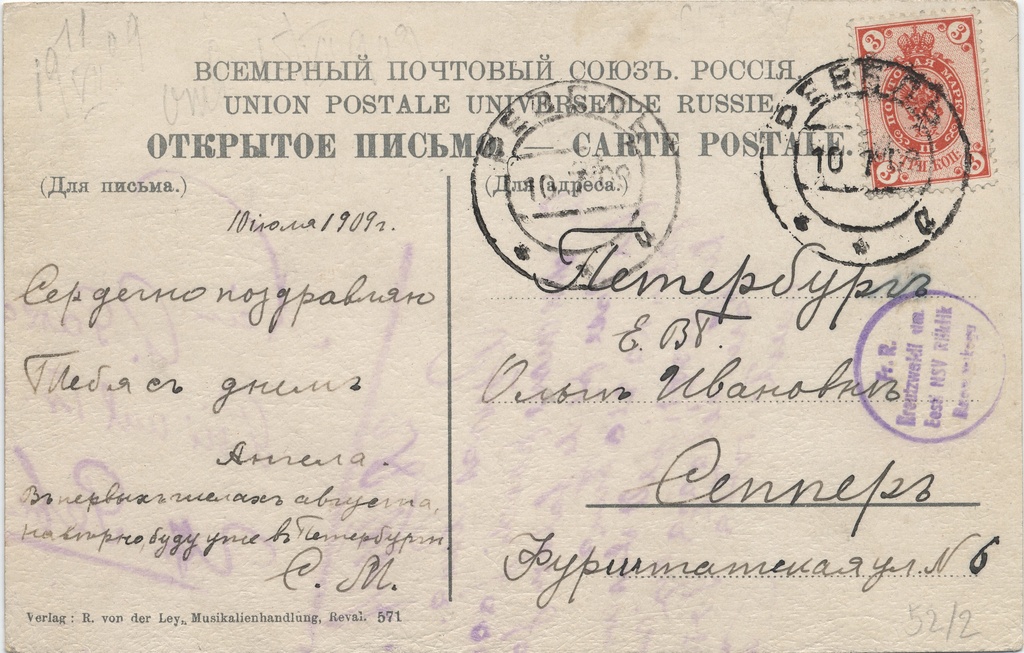 ВСЕМІРНЫЙ ПОЧТОВЫЙ СОЮЗЪ. РОССІЯ.
UNION POSTALE UNIVERSELLE RUSSIE
ОТКРЫТОЕ ПИСЬМО — CARTE POSTALE
(Для письма.)
(Для адреса.)
10 іюля 1909 г.
Сердечно поздравляю
Тебя съ днемъ
Ангела.
Въ первыхъ числахъ августа,
навѣрно, буду уже въ Петербургѣ.
С. М.
Петербургъ
Е. ВБ.
Ольгѣ Ивановнѣ
Сепперъ
Фурштатская ул. № 6
Verlag: R. von der Ley, Musikalienhandlung, Reval. 571
3 3
ПОЧТОВАЯ МАРКА
ТРИ КОП.
3 3
РЕВЕЛЬ
10.7.09
РЕВЕЛЬ
10.7
Fr. R.
Kreutzwaldi nim.
Eesti NSV Riiklik
52/2